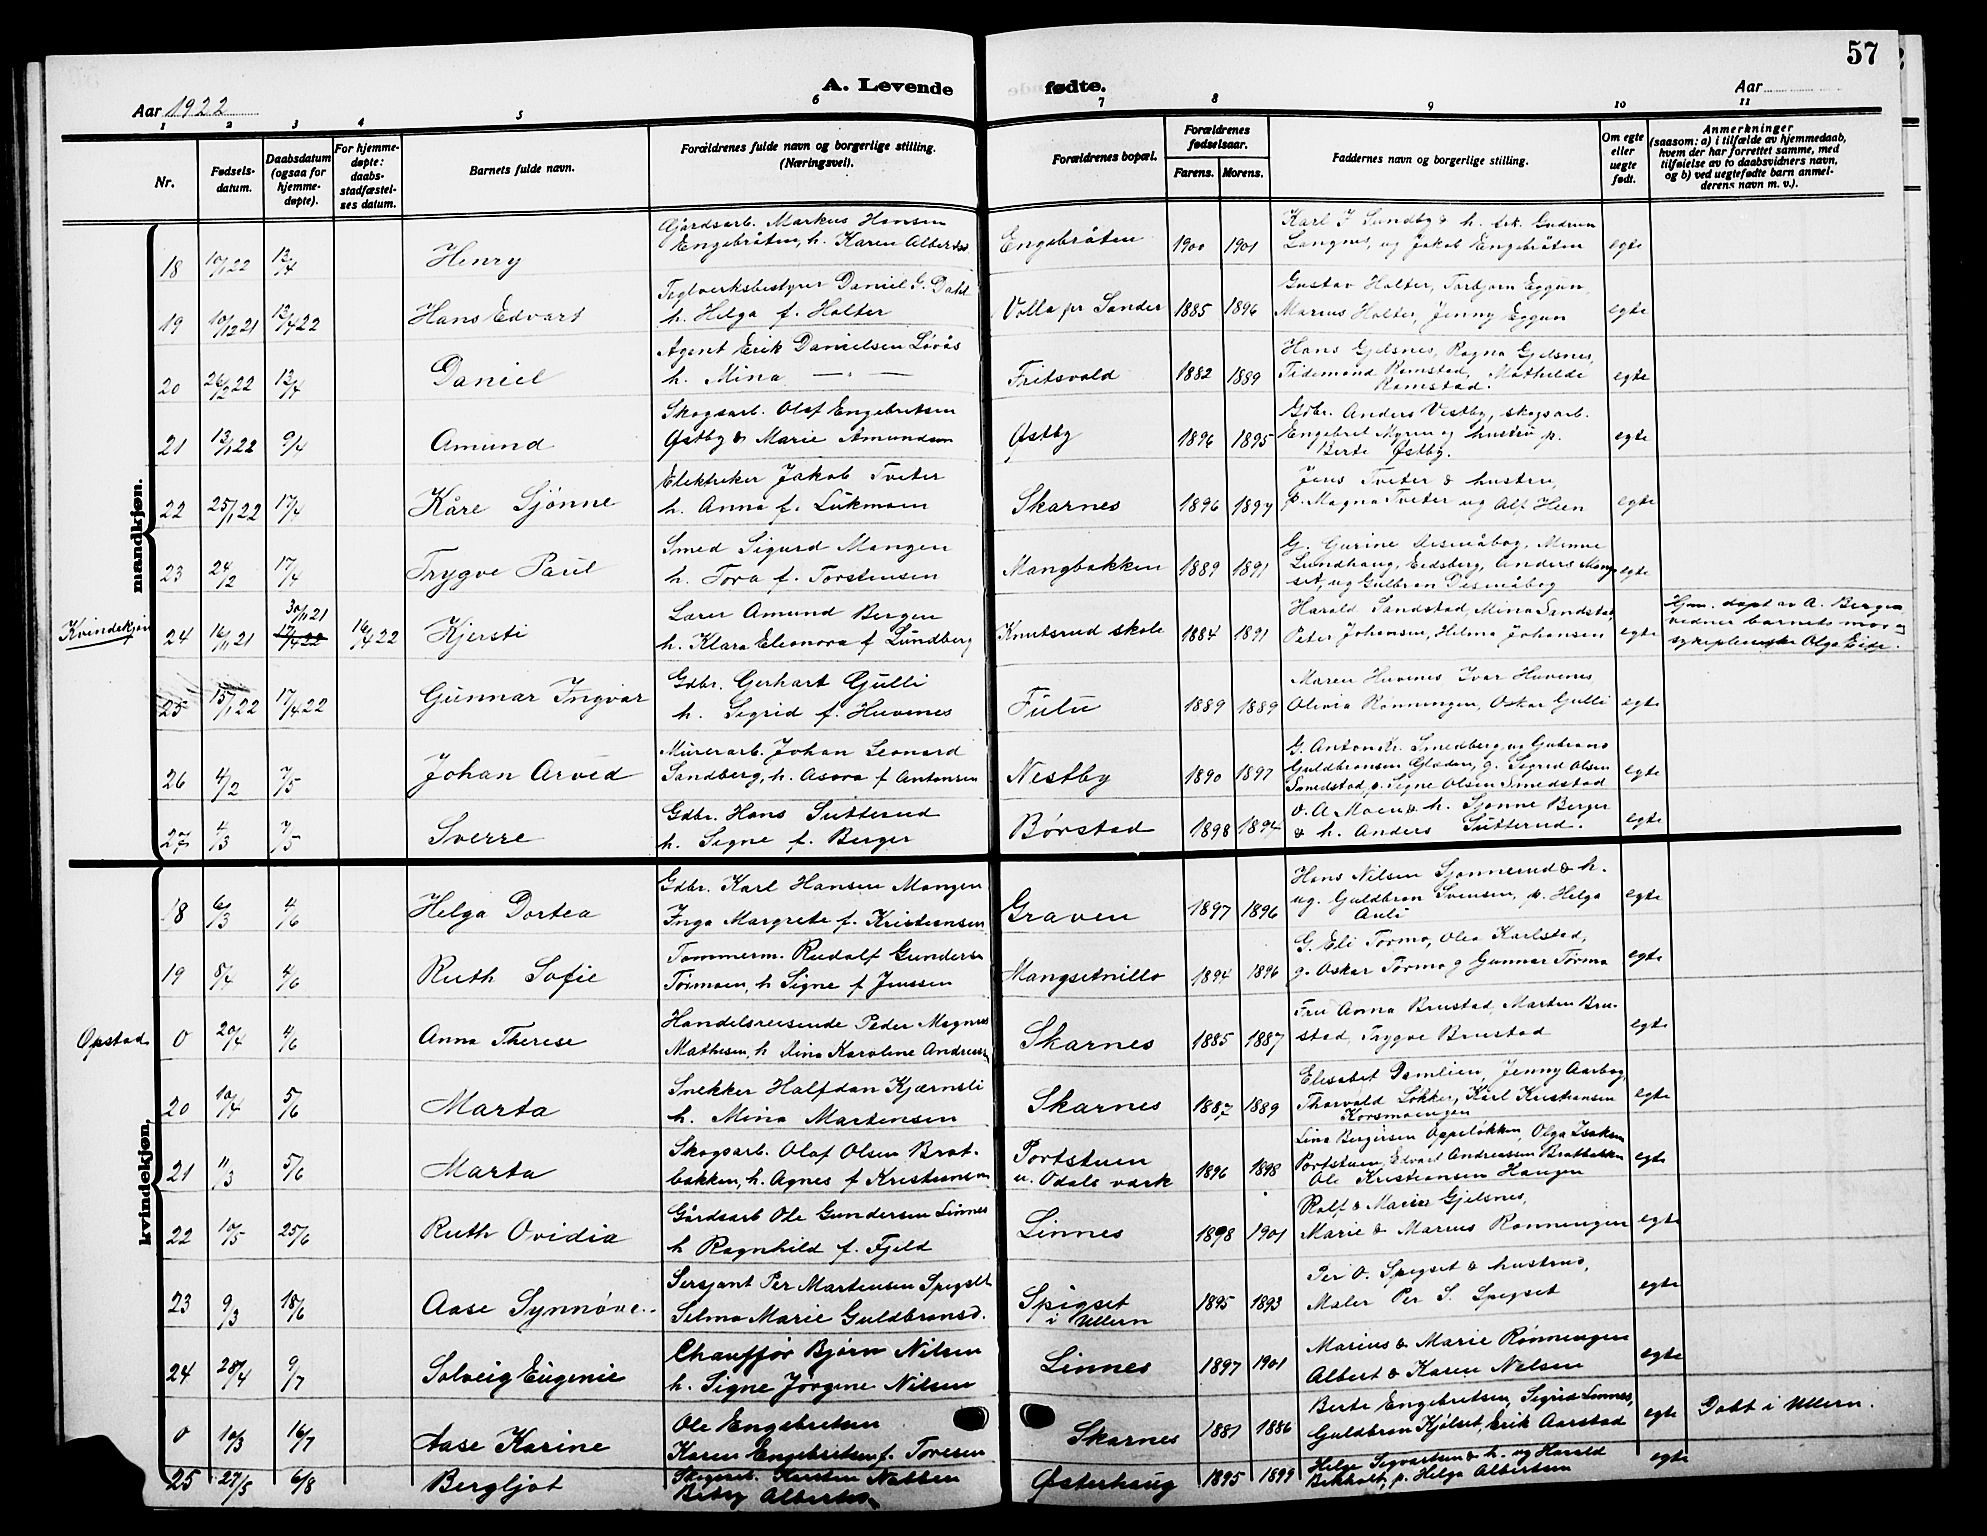 57
A. Levende fødte.
Aar 1922
Aar
1 2 3 4 5 6 7 8 9 10 11
Nr.
Fødsels-
datum.
Daabsdatum
(ogsaa for
hjemme-
døpte).
For hjemme-
døpte:
daabs-
stadfæstel-
ses datum.
Barnets fulde navn.
Forældrenes fulde navn og borgerlige stilling.
(Næringsvei).
Forældrenes bopæl.
Forældrenes
fødselsaar.
Farens. Morens.
Faddernes navn og borgerlige stilling.
Om egte
eller
uegte
født.
Anmerkninger
(saasom: a) i tilfælde av hjemmedaab,
hvem der har forrettet samme, med
tilføielse av to daabsvidners navn,
og b) ved uegtefødte barn anmel-
derens navn m. v.).
mandkjøn.
Gårdsarb. Markus Hansen
18 10/1 22 13/4 Henry Engebråten, h. Karen Engebråten 1900 1901 egte
Karl J Sundby & h. frk. Gudrun
Langnes, og Jakob Engebråten
Teglverksbestyrer Daniel G. Dahl
19 10/12 21 13/4 22 Hans Edvart h. Helga f. Holter Volla pr Sander 1885 1896 egte
Gustav Holter, Torbjørn Eggun,
Marius Holter, Jenny Eggun
Agent Erik Danielsen Løvås
20 26/2 22 13/4 Daniel h. Mina — " — Fritsvold 1882 1889 egte
Hans Gjelsnes, Ragna Gjelsnes,
Tidemand Ramstad, Mathilde
Ramstad.
Skogsarb. Olaf Engebretsen
21 13/1 22 9/4 Amund Østby & Marie Amundsen Østby 1896 1895 egte
Gdbr. Anders Vestby, skogsarb.
Engebret Myren og hustru p.
Berte Østby.
Elektriker Jakob Tveter
22 25/1 22 17/4 Kåre Sjønne h. Anna f. Lukmoen Skarnes 1896 1897 egte
Jens Tveter & hustru,
p. Magna Tveter og Alf Heen
Smed Sigurd Mangen
23 24/2 17/4 Trygve Paul h. Tora f. Torstensen Mangbakken 1889 1891 egte
Lundhaug, Eidsberg, Anders
Lærer Amund Bergen
Kvindekjøn 24 16/11 21 30/11 21 17/4 22 16/4 22 Kjersti h. Klara Eleonora f Lundberg Knutsrud skole 1884 1891 egte
Harald Sandstad, Mina Sandstad
Peter Johansen, Helma Johansen
Hjm. døpt av A. Bergen
vidner barnets mor og
sykepleierske Olga Eide.
Gdbr. Gerhart Gulli
25 15/1 22 17/4 22 Gunnar Ingvar h. Sigrid f. Huvenes Fulu 1889 1889 egte
Maren Huvenes Ivar Huvenes
Olivia Rønningen, Oskar Gulli
Murerarb. Johan Leonard
26 4/2 7/5 Johan Arvid Sandberg, h. Asora f Antonsen Nestby 1890 1897 egte
Smedstad, p. Signe Olsen Smedstad
Gdbr. Hans Sutterud
27 4/3 7/5 Sverre h. Signe f. Berger Børstad 1898 1894 egte
O. A Moen & h. Sjønne Berger
& h. Anders Sutterud.
kvindekjøn.
Gdbr. Karl Hansen Mangen
18 6/3 4/6 Helga Dortea Inga Margrete f. Kristiansen Graven 1897 1896 egte
Hans Nilsen Sjønnerud & h.
ug. Guldbran Svensen, p. Helga
Auli
Tømmerm. Rudolf Gundersen
19 8/4 4/6 Ruth Sofie Tormoen, h Signe f Jenssen Mangsetnillo 1894 1896 egte
G. Eli Tormo, Olea Karlstad,
g. Oskar Tormo g Gunnar Tormo
Handelsreisende Peder Magnus
Opstad 0 20/4 4/6 Anna Therese Mathisen, h Lina Karoline Andreassen Skarnes 1885 1887 egte
Fru Anna Brustad, Marten Bru-
stad, Trygve Brustad
Snekker Halfdan Kjærnsli
20 10/4 5/6 Marta h. Mina Martensen Skarnes 1887 1889 egte
Elisabet Damlien, Jenny Aarbog,
Thorvald Løkker, Karl Kristiansen
Korsmoengen
Skogsarb. Olaf Olsen Brat-
21 11/3 5/6 Marta bakken, h. Agnes f Kristiansen Portstuen
u. Odals værk 1896 1898 egte
Lina Bergersen Oppeløkken, Olga Isaksen
Portstuen, Edvart Andreassen Bratbakken
Ole Kristiansen Haugen
Gårdsarb Ole Gundersen Linnes
22 10/5 25/6 Ruth Ovidia h Ragnhild f. Fjeld Linnes 1898 1901 egte
Rolf & Marie Gjelsnes,
Marie & Marius Rønningen
Sersjant Per Martensen Spigset
23 9/3 18/6 Aase Synnøve Selma Marie Guldbransd. Spigset
i Ullern 1895 1893 egte
Per O. Spigset & hustru,
Maler Per S. Spigset
Chauffør Bjørn Nilsen
24 28/4 9/7 Solveig Eugenie h. Signe Jørgine Nilsen Linnes 1897 1901 egte
Marius & Marie Rønningen
Albert & Karen Nilsen
Ole Engebretsen
0 10/3 16/7 Aase Karine Karen Engebretsen f. Toresen Skarnes 1881 1886 egte
Berte Engebretsen, Sigrid Linnes,
Guldbran Kjølset, Erik Aarstad
Døbt i Ullern.
Skogsarb. Karsten Nabben
25 27/5 6/8 Bergljot Betsy Albertsen Østerhaug 1895 1899 egte
Helge Sigvartsen & h. og Harald
Bekholt, p. Helga Albertsen